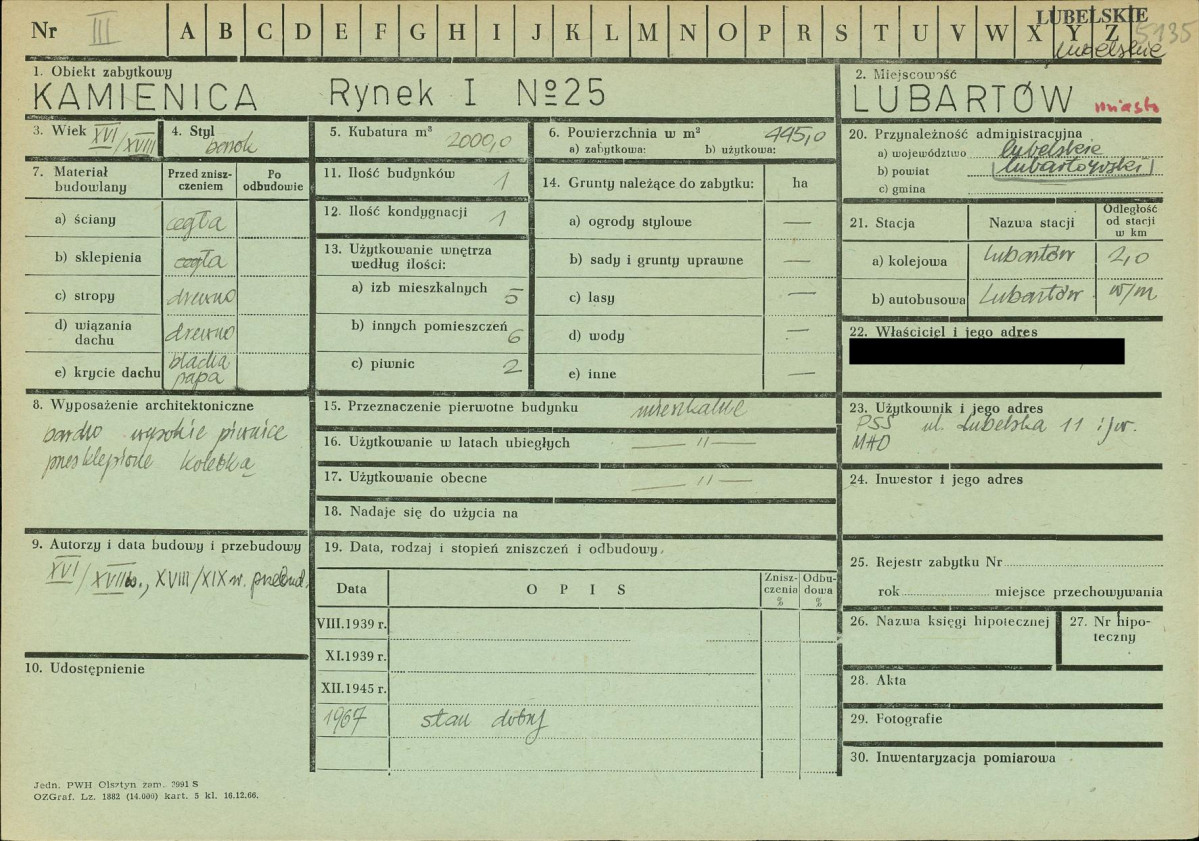 Nr III A B C D E F G H I J K L M N O P R S T U V W X Y Z
LUBELSKIE
5135
lubelskie
1. Obiekt zabytkowy
KAMIENICA Rynek I №25
2. Miejscowość
LUBARTÓW miasto
3. Wiek XVI/XVIII
4. Styl
barok
5. Kubatura m³ 2000,0
6. Powierzchnia w m² 445,0
a) zabytkowa: b) użytkowa:
7. Materiał budowlany
Przed znisz-
czeniem
Po
odbudowie
a) ściany cegła
b) sklepienia cegła
c) stropy drewno
d) wiązania
dachu drewno
e) krycie dachu blacha
papa
8. Wyposażenie architektoniczne
bardzo wysokie piwnice
przesklepione kolebką
9. Autorzy i data budowy i przebudowy
XVI/XVII w., XVIII/XIX w. przebud.
10. Udostępnienie
11. Ilość budynków 1
12. Ilość kondygnacji 1
13. Użytkowanie wnętrza
według ilości:
a) izb mieszkalnych 5
b) innych pomieszczeń 6
c) piwnic 2
14. Grunty należące do zabytku: ha
a) ogrody stylowe —
b) sady i grunty uprawne —
c) lasy —
d) wody —
e) inne —
15. Przeznaczenie pierwotne budynku mieszkalne
16. Użytkowanie w latach ubiegłych — " —
17. Użytkowanie obecne — " —
18. Nadaje się do użycia na
19. Data, rodzaj i stopień zniszczeń i odbudowy.
Data
O P I S
Znisz-
czenia
%
Odbu-
dowa
%
VIII.1939 r.
XI.1939 r.
XII.1945 r.
1967 stan dobry
20. Przynależność administracyjna
a) województwo lubelskie
b) powiat lubartowski
c) gmina
21. Stacja
Nazwa stacji
Odległość
od stacji
w km
a) kolejowa Lubartów 2,0
b) autobusowa Lubartów w/m
22. Właściciel i jego adres
23. Użytkownik i jego adres
PSS ul. Lubelska 11 i jw.
MHD
24. Inwestor i jego adres
25. Rejestr zabytku Nr
rok miejsce przechowywania
26. Nazwa księgi hipotecznej
27. Nr hipo-
teczny
28. Akta
29. Fotografie
30. Inwentaryzacja pomiarowa
Jedn. PWH Olsztyn zam. 3991 S
OZGraf. Lz. 1882 (14.000) kart. 5 kl. 16.12.66.